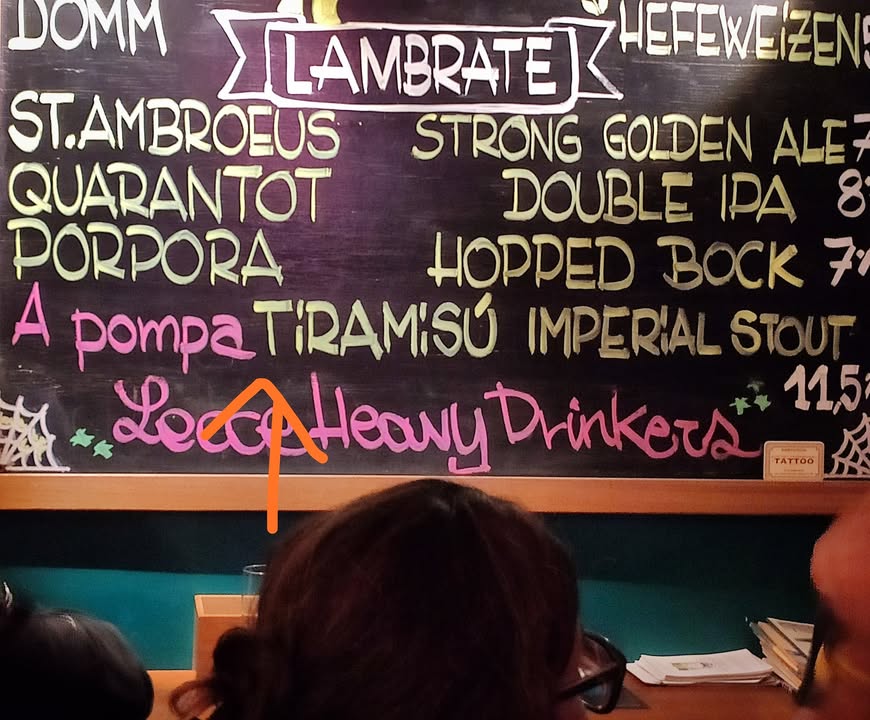 LAMBRATE
DOMM HEFEWEiZEN 5
ST.AMBROEUS STRONG GOLDEN ALE 7
QUARANTOT DOUBLE IPA 8
PORPORA HOPPED BOCK 7%
A pompa TiRAMiSÚ IMPERiAL STOUT
11,5%
Lecce Heavy Drinkers
TATTOO